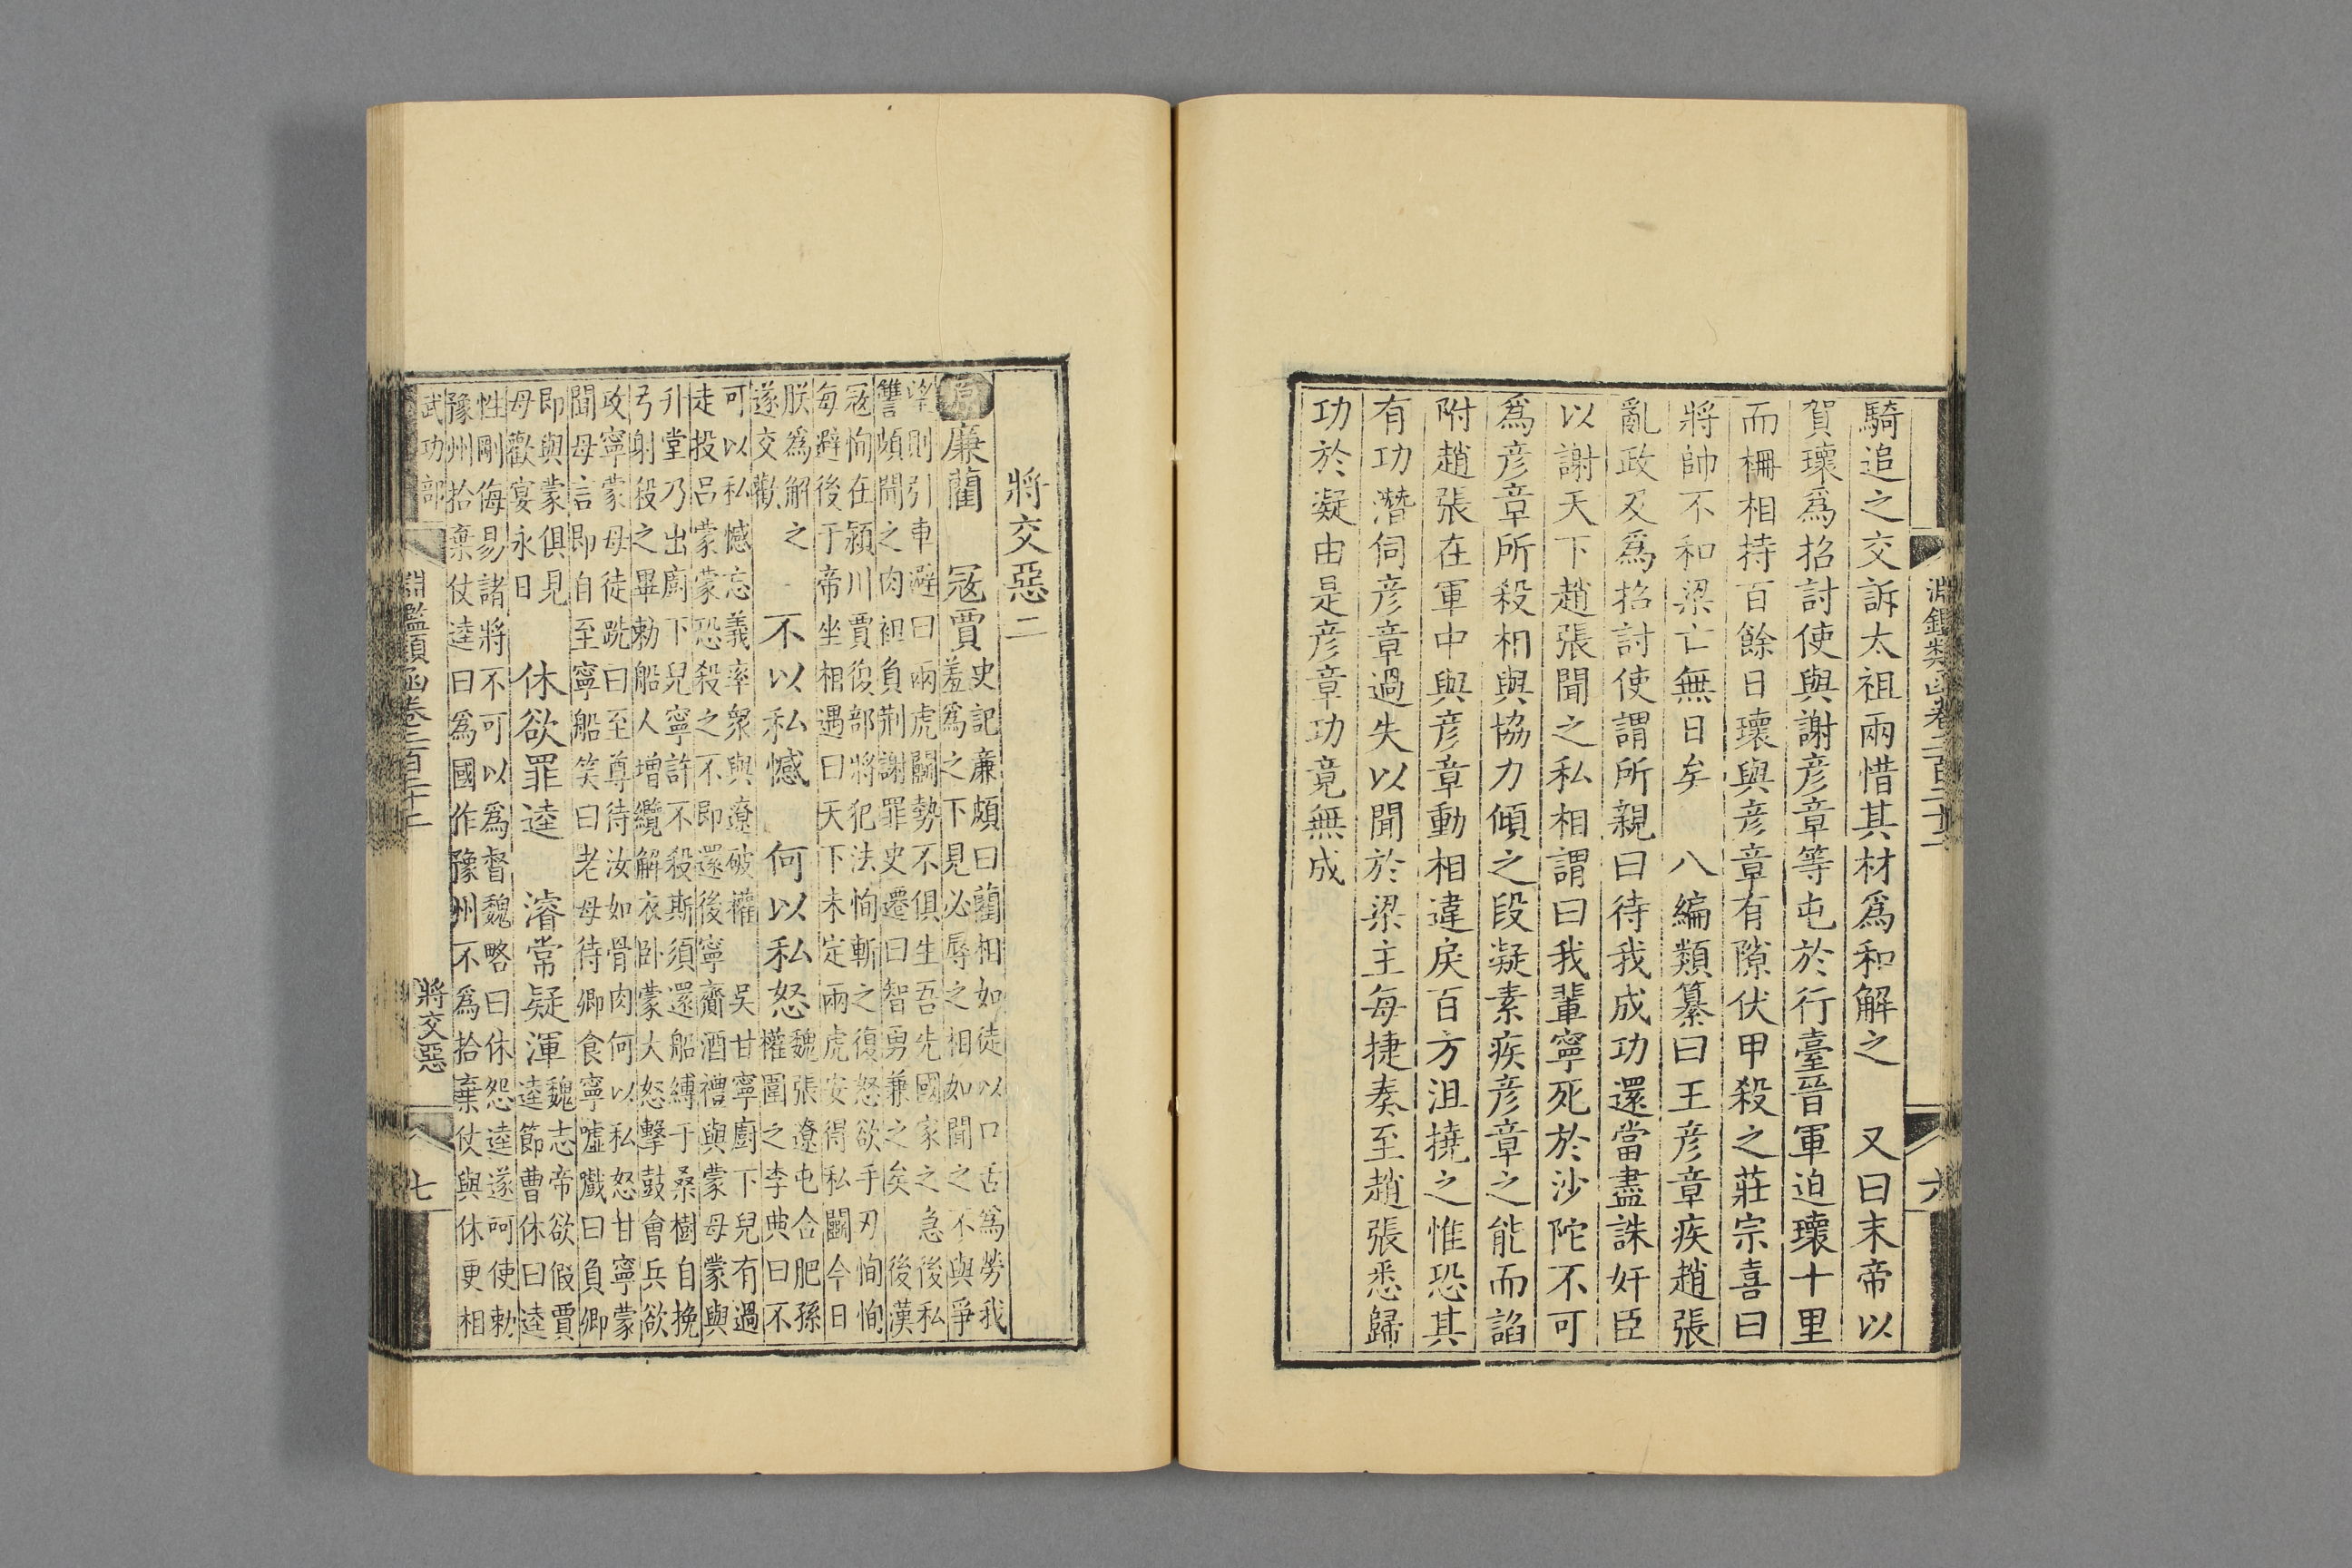 淵鑑類函卷二百二十二　六
騎追之交訴太祖兩惜其材爲和解之　又曰末帝以
賀瓌爲招討使與謝彥章等屯於行臺晉軍迫瓌十里
而柵相持百餘日瓌與彥章有隙伏甲殺之莊宗喜曰
將帥不和梁亡無日矣　八編類纂曰王彥章疾趙張
亂政及爲招討使謂所親曰待我成功還當盡誅奸臣
以謝天下趙張聞之私相謂曰我輩寧死於沙陀不可
爲彥章所殺相與協力傾之段凝素疾彥章之能而諂
附趙張在軍中與彥章動相違戾百方沮撓之惟恐其
有功潛伺彥章過失以聞於梁主每捷奏至趙張悉歸
功於凝由是彥章功竟無成
將交惡二
原廉藺　寇賈
史記廉頗曰藺相如徒以口舌爲勞我
羞爲之下見必辱之相如聞之不與爭
望則引車避曰兩虎鬭勢不俱生吾先國家之急後私
讐頗聞之肉袒負荆謝罪史遷曰智勇兼之矣　後漢
寇恂在潁川賈復部將犯法恂斬之復怒欲手刃恂恂
每避後于帝坐相遇曰天下未定兩虎安得私鬭今日
朕爲解之
遂交歡
不以私憾　何以私怒
魏張遼屯合肥孫
權圍之李典曰不
可以私憾忘義率衆與遼破權　吳甘寧廚下兒有過
走投呂蒙蒙恐殺之不即還後寧齎酒禮與蒙母蒙與
升堂乃出廚下兒寧許不殺斯須還船縛于桑樹自挽
弓射殺之畢勅船人增纜解衣卧蒙大怒擊鼓會兵欲
攻寧蒙母徒跣曰至尊待汝如骨肉何以私怒甘寧蒙
聞母言即自至寧船笑曰老母待卿食寧噓戲曰負卿
即與蒙俱見
母歡宴永日
休欲罪逵　濬常疑渾
魏志帝欲假賈
逵節曹休曰逵
性剛侮易諸將不可以爲督魏略曰休怨逵遂呵使勅
豫州拾棄仗逵曰爲國作豫州不爲拾棄仗與休更相
武功部　淵鑑類函卷二百二十二　將交惡　七